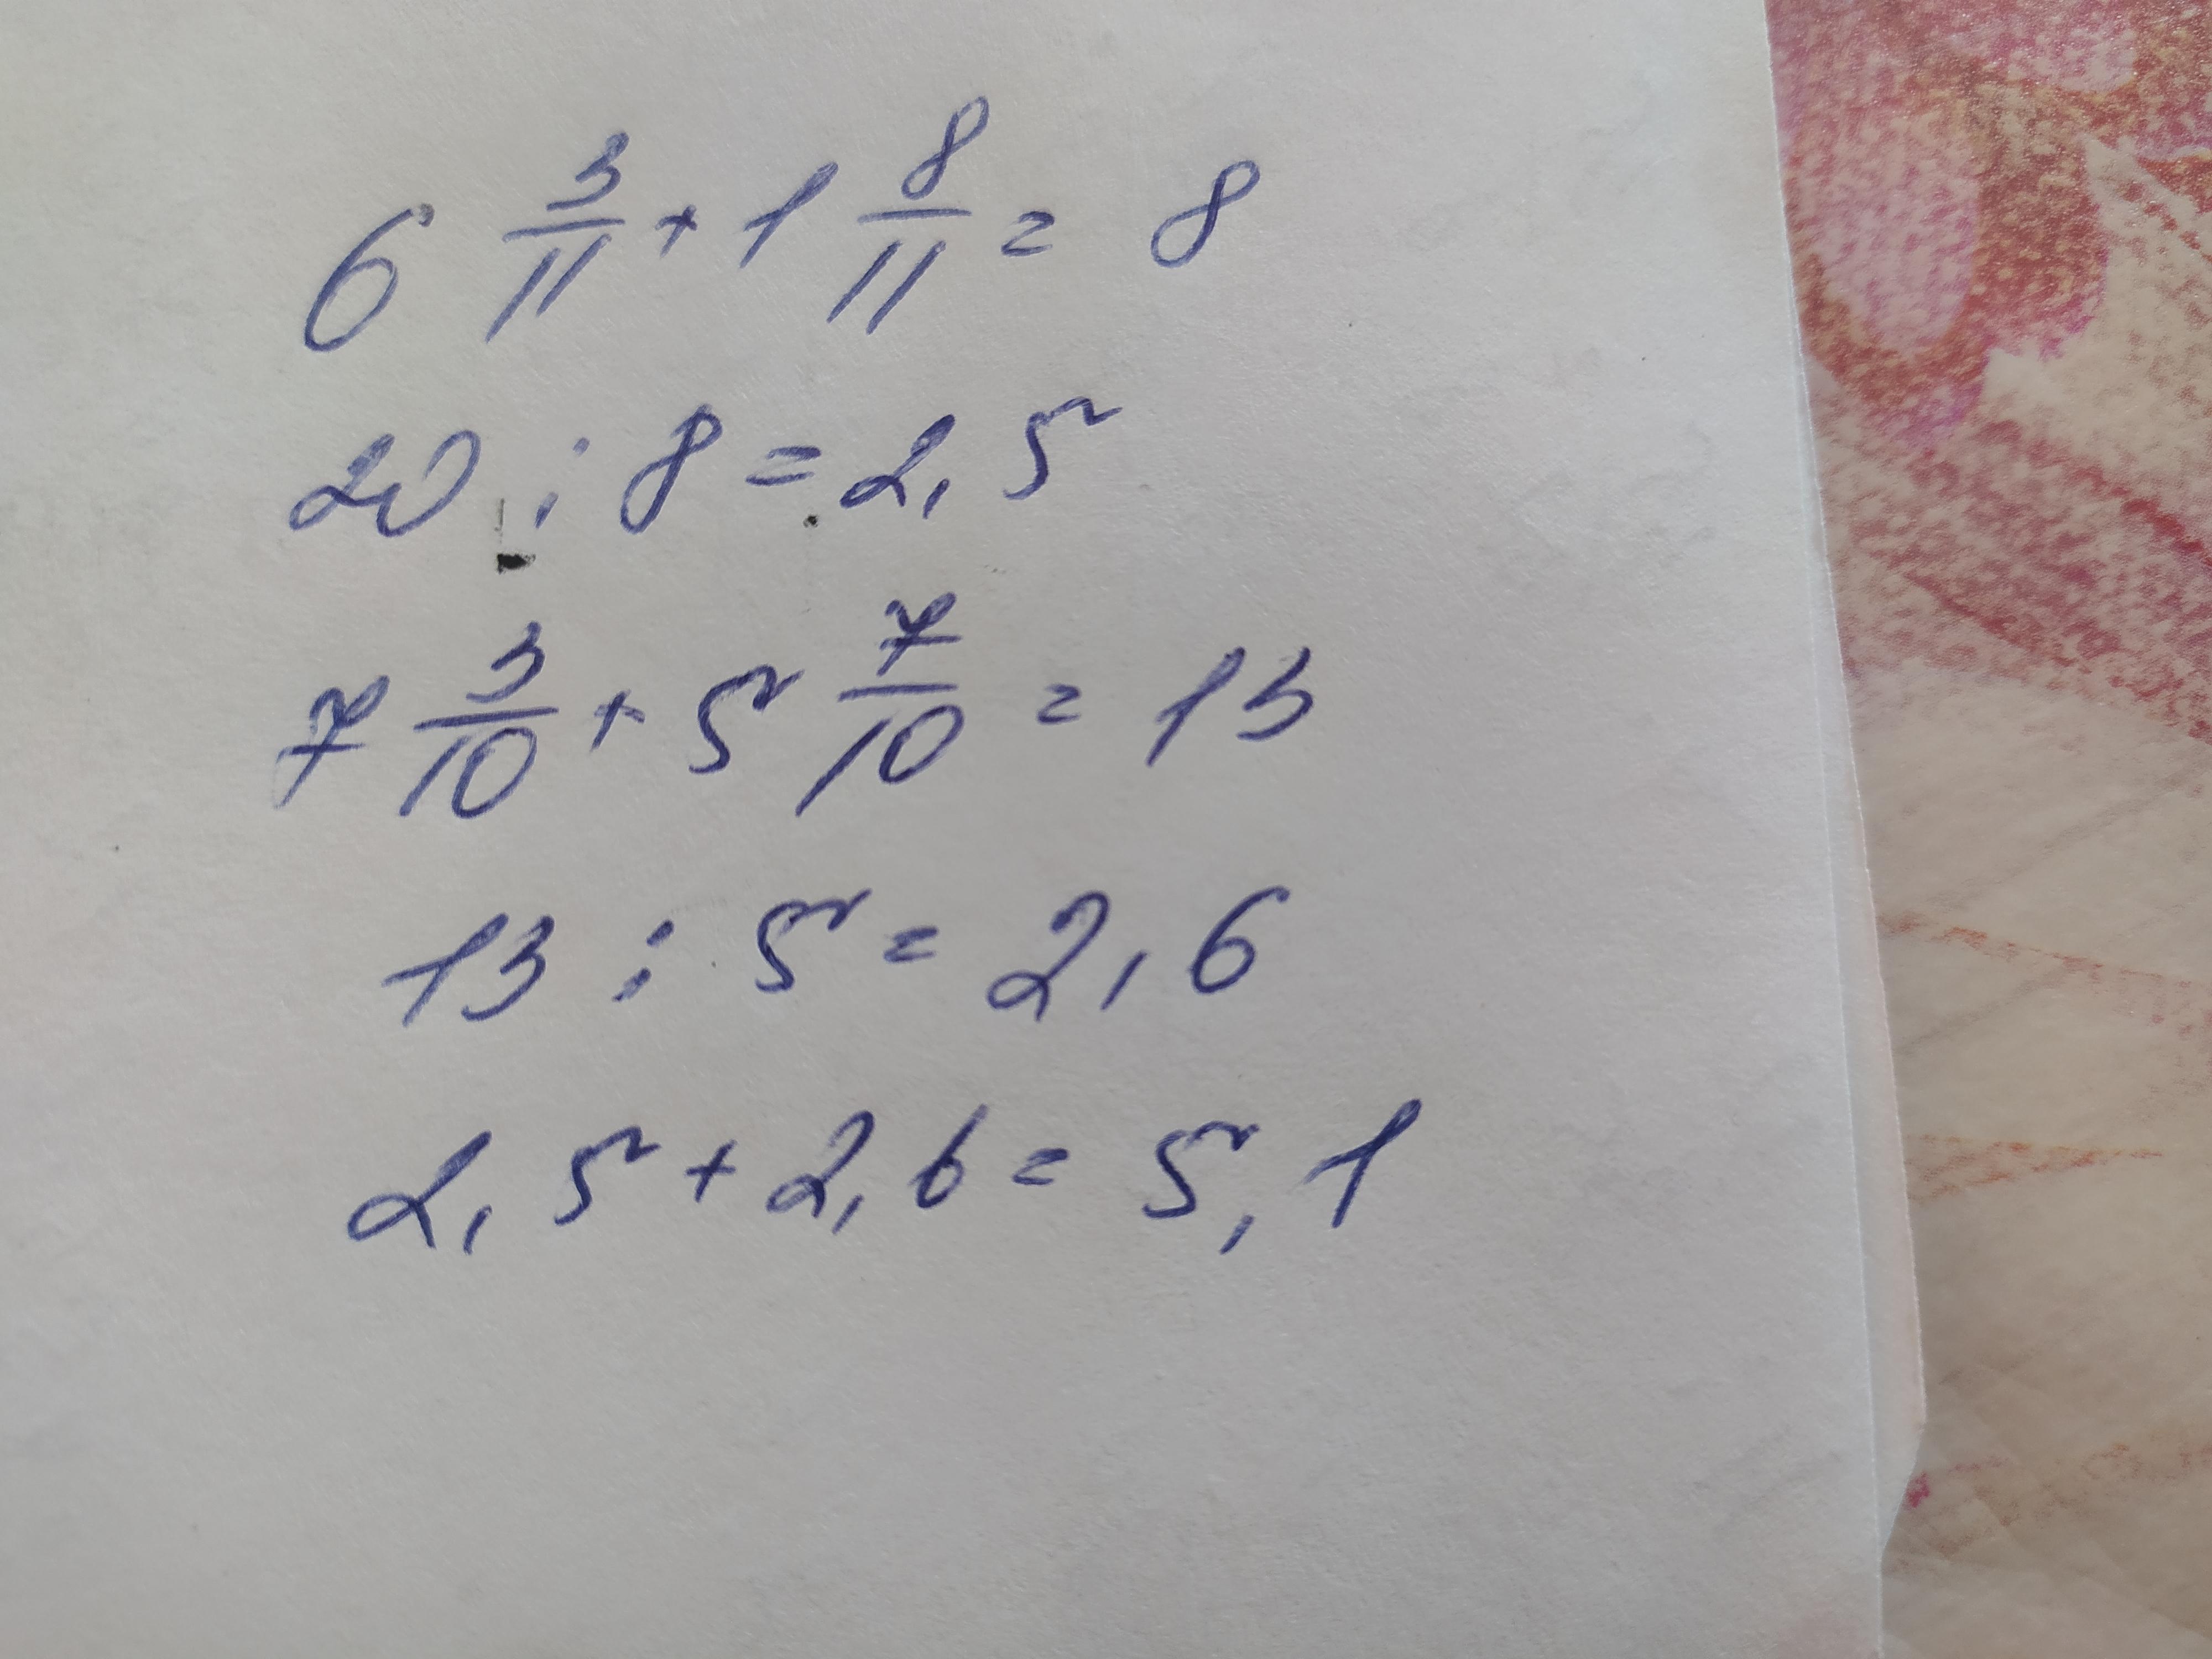 6 3/11 + 1 8/11 = 8
20 : 8 = 2,5
7 3/10 + 5 7/10 = 13
13 : 5 = 2,6
2,5 + 2,6 = 5,1